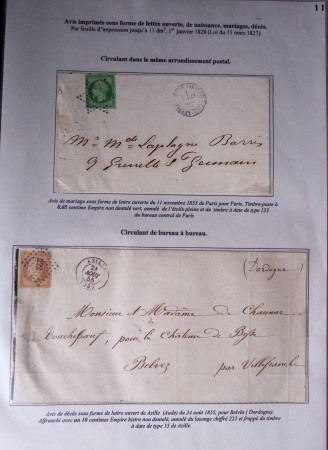 11
Avis imprimés sous forme de lettre ouverte, de naissance, mariages, décès.
Par feuille d'impression jusqu'à 11 dm². 1er janvier 1828 (Loi du 15 mars 1827)
Circulant dans le même arrondissement postal.
Mr Mde Laplagne Barris
9 Grenelle St Germain
Avis de mariage sous forme de lettre ouverte du 11 novembre 1855 de Paris pour Paris. Timbre-poste à
0,05 centime Empire non dentelé vert, annulé de l'étoile pleine et du timbre à date de type 133
du bureau central de Paris.
Circulant de bureau à bureau.
AZILLE
24
AOUT
55
(10)
(Dordogne)
Monsieur et Madame de Chaunac
pour le Château de
Belvez par Villefranche
Avis de décès sous forme de lettre ouvert de Azille (Aude) du 24 août 1855, pour Belvès ( Dordogne).
Affranchi avec un 10 centimes Empire bistre non dentelé, annulé du losange chiffré 222 et frappé du timbre
à date de type 15 de Azille.